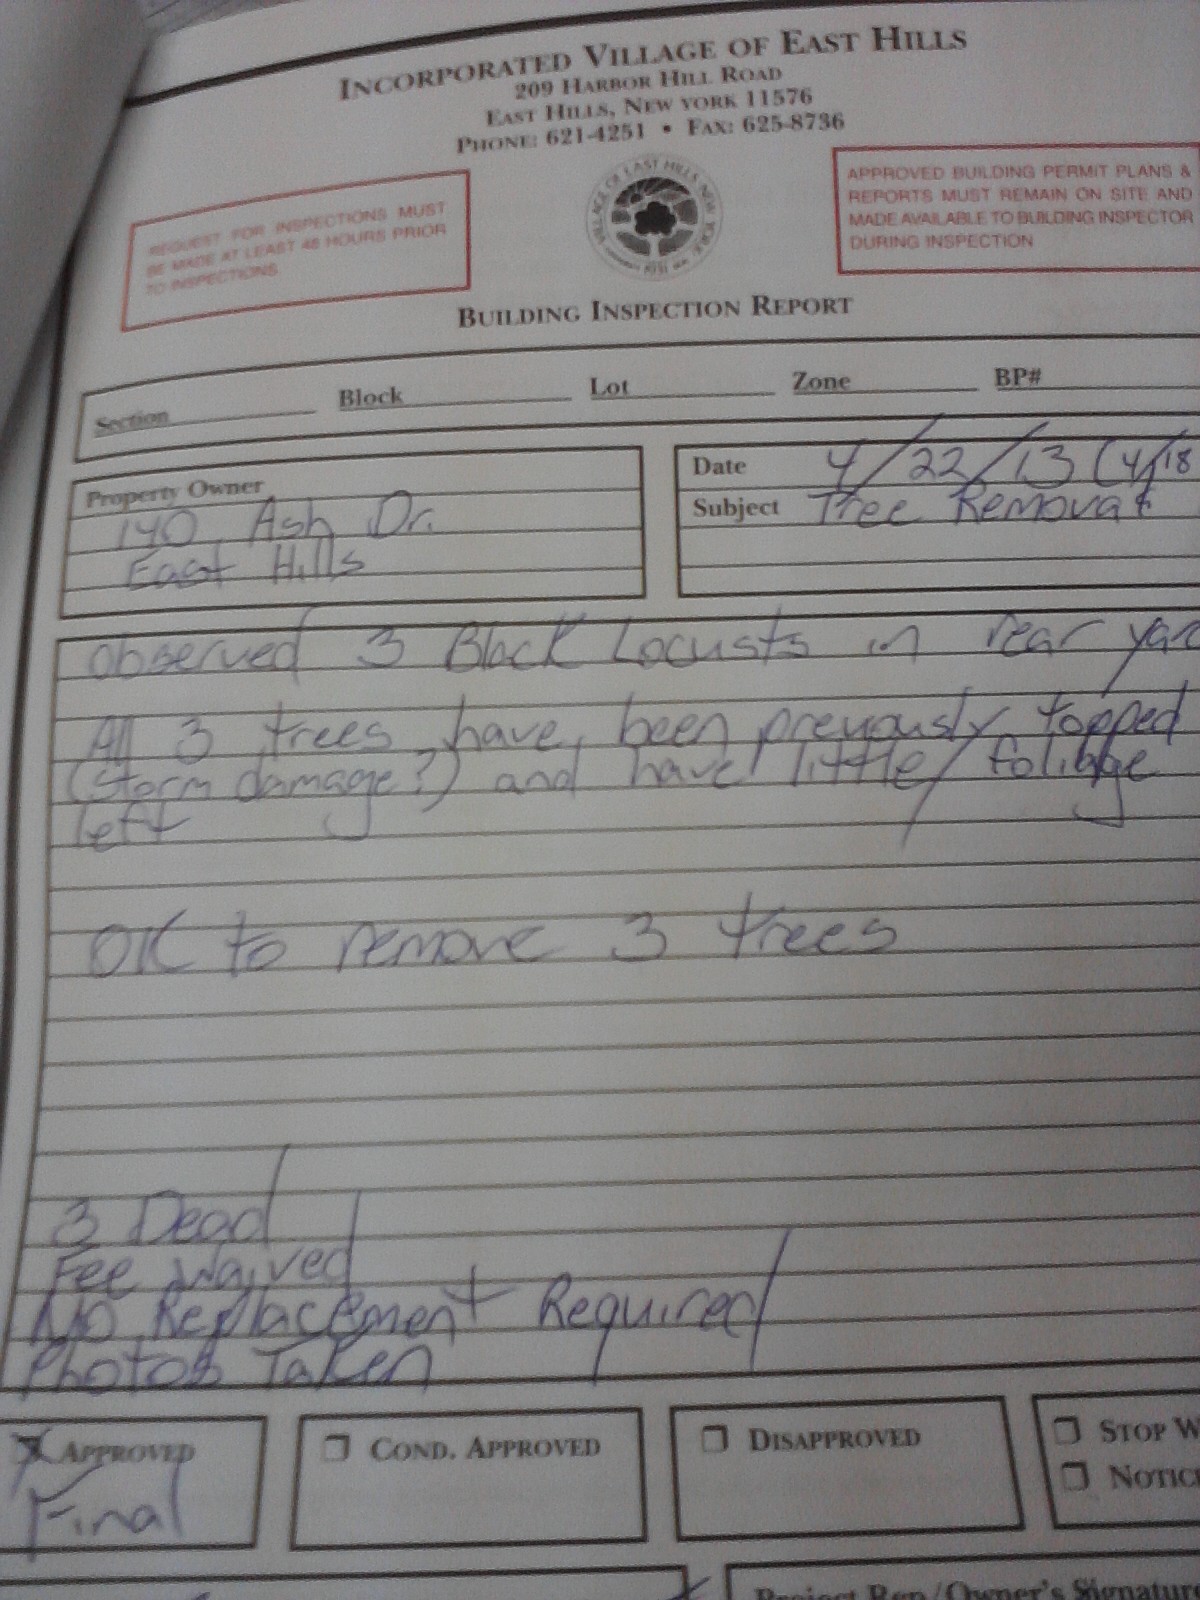 INCORPORATED VILLAGE OF EAST HILLS
209 HARBOR HILL ROAD
EAST HILLS, NEW YORK 11576
PHONE: 621-4251 • FAX: 625-8736
REQUEST FOR INSPECTIONS MUST
BE MADE AT LEAST 48 HOURS PRIOR
TO INSPECTIONS.
VILLAGE OF EAST HILLS, NEW YORK
1931
APPROVED BUILDING PERMIT PLANS &
REPORTS MUST REMAIN ON SITE AND
MADE AVAILABLE TO BUILDING INSPECTOR
DURING INSPECTION
BUILDING INSPECTION REPORT
Section Block Lot Zone BP#
Property Owner
140 Ash Dr.
East Hills
Date 4/22/13 (4/18
Subject Tree Removal
Observed 3 Black Locusts in rear yard
All 3 trees have been previously topped
(storm damage?) and have little foliage
left
OK to remove 3 trees
3 Dead
Fee Waived
No Replacement Required
Photos Taken
APPROVED
Final
COND. APPROVED
DISAPPROVED
STOP W
NOTIC
Project Rep/Owner's Signature